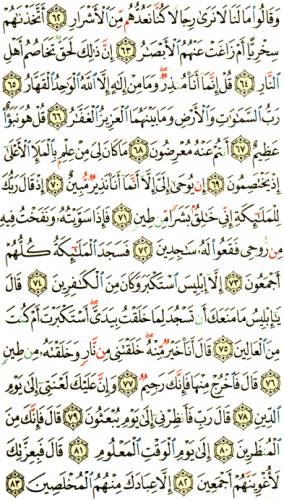 وَقَالُوا۟ مَا لَنَا لَا نَرَىٰ رِجَالًا كُنَّا نَعُدُّهُم مِّنَ ٱلْأَشْرَارِ ٦٢ أَتَّخَذْنَٰهُمْ
سِخْرِيًّا أَمْ زَاغَتْ عَنْهُمُ ٱلْأَبْصَٰرُ ٦٣ إِنَّ ذَٰلِكَ لَحَقٌّ تَخَاصُمُ أَهْلِ
ٱلنَّارِ ٦٤ قُلْ إِنَّمَآ أَنَا۠ مُنذِرٌ وَمَا مِنْ إِلَٰهٍ إِلَّا ٱللَّهُ ٱلْوَٰحِدُ ٱلْقَهَّارُ ٦٥
رَبُّ ٱلسَّمَٰوَٰتِ وَٱلْأَرْضِ وَمَا بَيْنَهُمَا ٱلْعَزِيزُ ٱلْغَفَّٰرُ ٦٦ قُلْ هُوَ نَبَؤٌا۟
عَظِيمٌ ٦٧ أَنتُمْ عَنْهُ مُعْرِضُونَ ٦٨ مَا كَانَ لِىَ مِنْ عِلْمٍۭ بِٱلْمَلَإِ ٱلْأَعْلَىٰٓ
إِذْ يَخْتَصِمُونَ ٦٩ إِن يُوحَىٰٓ إِلَىَّ إِلَّآ أَنَّمَآ أَنَا۠ نَذِيرٌ مُّبِينٌ ٧٠ إِذْ قَالَ رَبُّكَ
لِلْمَلَٰٓئِكَةِ إِنِّى خَٰلِقٌۢ بَشَرًا مِّن طِينٍ ٧١ فَإِذَا سَوَّيْتُهُۥ وَنَفَخْتُ فِيهِ
مِن رُّوحِى فَقَعُوا۟ لَهُۥ سَٰجِدِينَ ٧٢ فَسَجَدَ ٱلْمَلَٰٓئِكَةُ كُلُّهُمْ
أَجْمَعُونَ ٧٣ إِلَّآ إِبْلِيسَ ٱسْتَكْبَرَ وَكَانَ مِنَ ٱلْكَٰفِرِينَ ٧٤ قَالَ
يَٰٓإِبْلِيسُ مَا مَنَعَكَ أَن تَسْجُدَ لِمَا خَلَقْتُ بِيَدَىَّ أَسْتَكْبَرْتَ أَمْ كُنتَ
مِنَ ٱلْعَالِينَ ٧٥ قَالَ أَنَا۠ خَيْرٌ مِّنْهُ خَلَقْتَنِى مِن نَّارٍ وَخَلَقْتَهُۥ مِن طِينٍ
٧٦ قَالَ فَٱخْرُجْ مِنْهَا فَإِنَّكَ رَجِيمٌ ٧٧ وَإِنَّ عَلَيْكَ لَعْنَتِىٓ إِلَىٰ يَوْمِ
ٱلدِّينِ ٧٨ قَالَ رَبِّ فَأَنظِرْنِىٓ إِلَىٰ يَوْمِ يُبْعَثُونَ ٧٩ قَالَ فَإِنَّكَ مِنَ
ٱلْمُنظَرِينَ ٨٠ إِلَىٰ يَوْمِ ٱلْوَقْتِ ٱلْمَعْلُومِ ٨١ قَالَ فَبِعِزَّتِكَ
لَأُغْوِيَنَّهُمْ أَجْمَعِينَ ٨٢ إِلَّا عِبَادَكَ مِنْهُمُ ٱلْمُخْلَصِينَ ٨٣